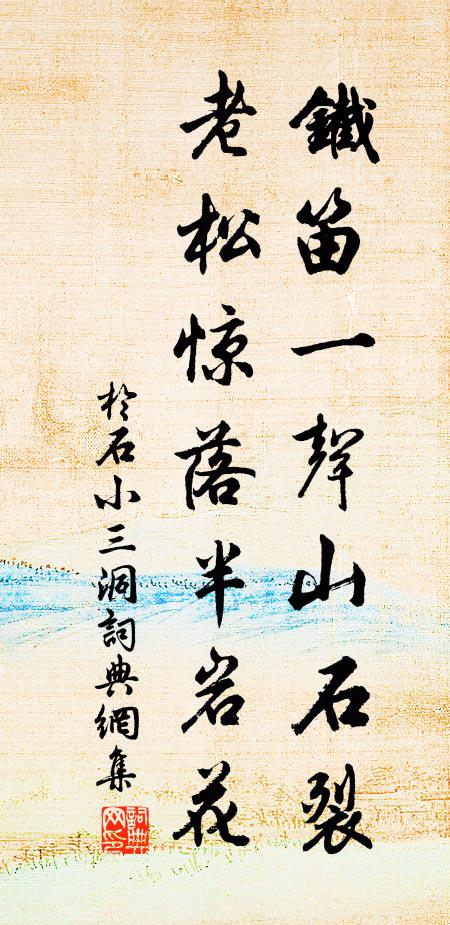 鐵笛一聲山石裂
老松惊落半岩花
於石小三洞詞典網集
詞典网印